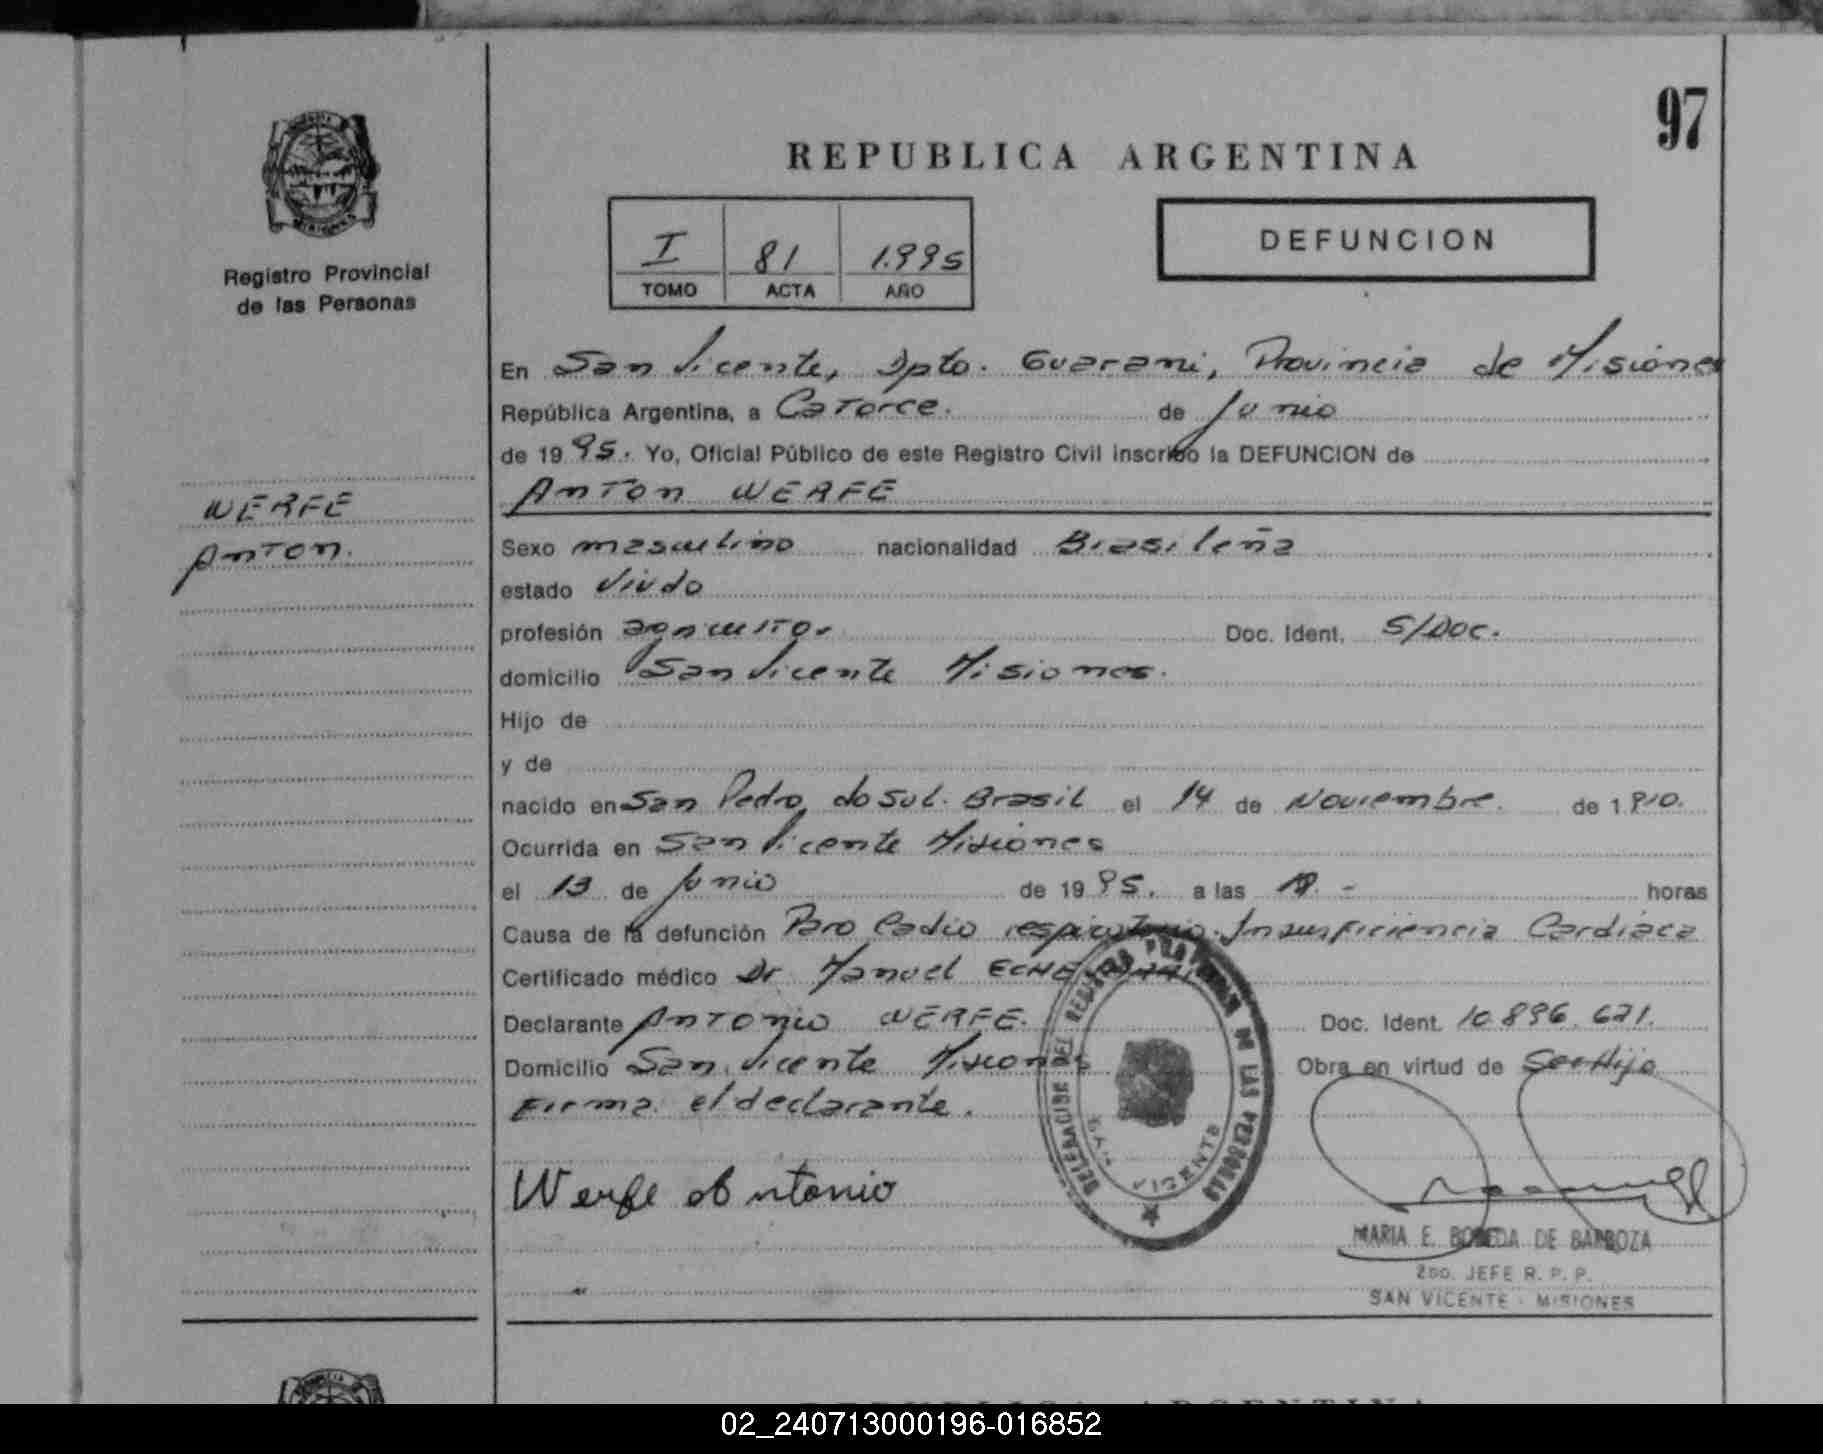 97
REPUBLICA ARGENTINA
I 81 1.995
TOMO ACTA AÑO
DEFUNCION
Registro Provincial
de las Personas
WERFE
ANTON.
En San Vicente, Dpto. Guarani, Provincia de Misiones
República Argentina, a Catorce. de Junio
de 1995. Yo, Oficial Público de este Registro Civil inscribo la DEFUNCION de
ANTON WERFE
Sexo masculino nacionalidad Brasileña
estado Viudo
profesión agricultor Doc. Ident. S/Doc.
domicilio San Vicente Misiones.
Hijo de
y de
nacido en San Pedro do Sul. Brasil el 14 de Noviembre. de 1.910.
Ocurrida en San Vicente Misiones
el 13 de Junio de 1995. a las horas
Causa de la defunción Paro Cadio respiratorio. Insuficiencia Cardiaca
Certificado médico Dr Manuel
Declarante ANTONIO WERFE. Doc. Ident. 10.896.621.
Domicilio San Vicente Misiones Obra en virtud de Ser Hijo
Firma el declarante.
DELEGACION DEL REGISTRO DE LAS PERSONAS
SAN VICENTE
Werfe Antonio
MARIA E. BOVEDA DE BARBOZA
2DO. JEFE R. P. P.
SAN VICENTE - MISIONES
REPUBLICA ARGENTINA
02_240713000196-016852